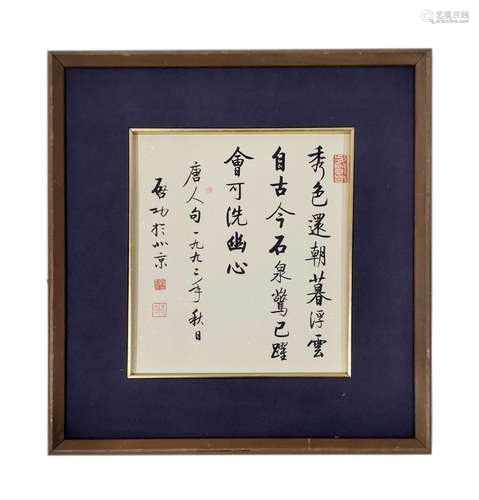 艺狐在线
秀色還朝暮浮雲
自古今石泉驚已躍
會可洗幽心
唐人句一九九二年秋日
啓功於北京